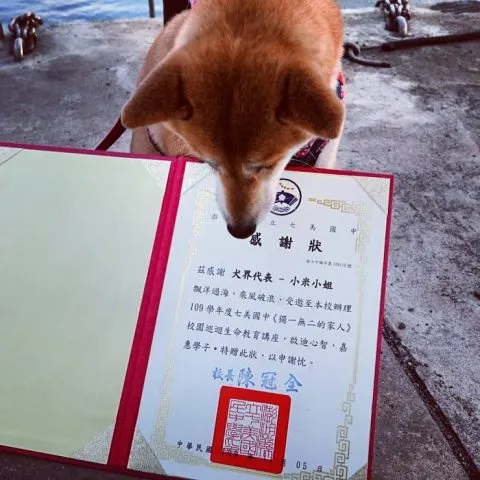 澎 立七美國中
感謝狀
茲感謝 犬界代表－小米小姐
飄洋過海，乘風破浪，受邀至本校辦理
109學年度七美國中《獨一無二的家人》
校園巡迴生命教育講座，啟迪心智，嘉
惠學子。特贈此狀，以申謝忱。
校長 陳冠全
中華民國 月 05 日